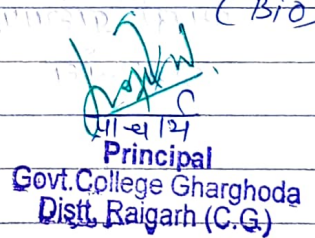 ( Bio )
Principal
Govt. College Gharghoda
Distt. Raigarh (C.G.)